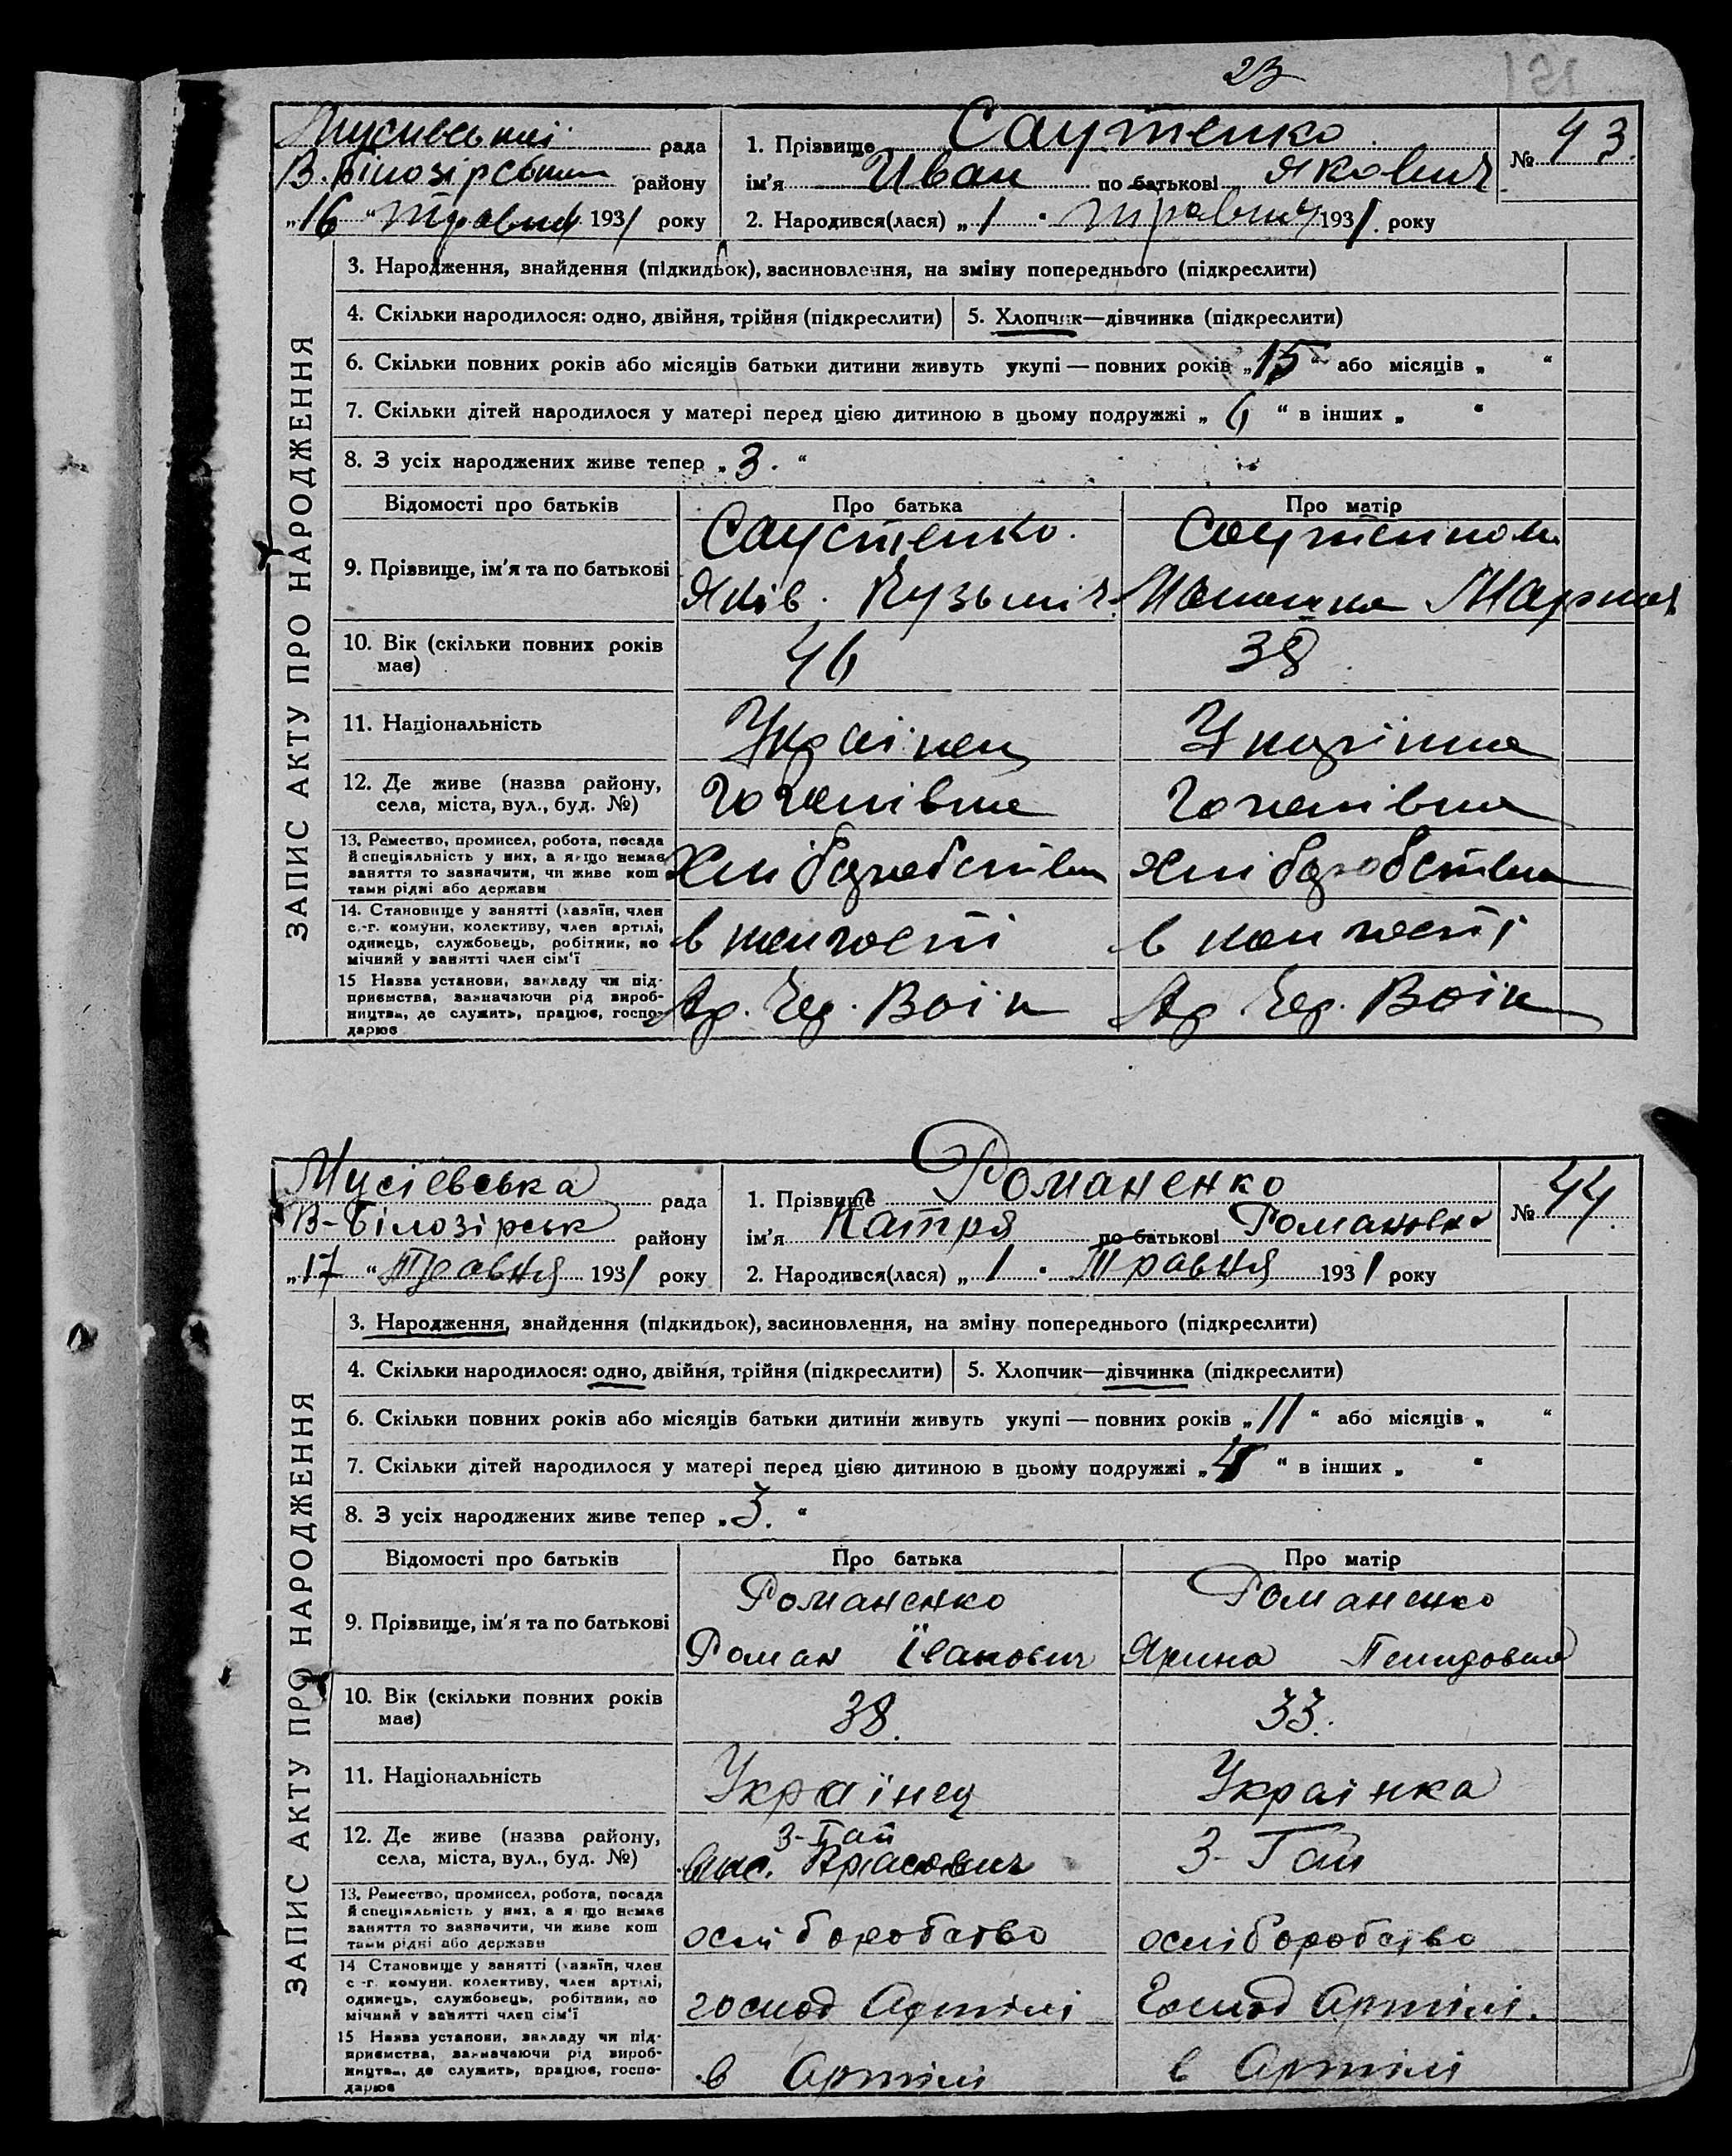 23
рада
В. Білозірськ району
„16“ травня 1931 року
1. Прізвище Саутенко
ім'я Иван по батькові Якович
№ 43.
2. Народився(лася) „1“ травня 1931. року
ЗАПИС АКТУ ПРО НАРОДЖЕННЯ
3. Народження, знайдення (підкидьок), засиновлення, на зміну попереднього (підкреслити)
4. Скільки народилося: одно, двійня, трійня (підкреслити) 5. Хлопчик—дівчинка (підкреслити)
6. Скільки повних років або місяців батьки дитини живуть укупі — повних років „15“ або місяців „ “
7. Скільки дітей народилося у матері перед цією дитиною в цьому подружжі „6“ в інших „ “
8. З усіх народжених живе тепер „3.“
Відомості про батьків Про батька Про матір
9. Прізвище, ім'я та по батькові
Саустенко.
Яків. Кузьмич.
10. Вік (скільки повних років
має)
46 38
11. Національність Українец Українка
12. Де живе (назва району,
села, міста, вул., буд. №)
13. Ремество, промисел, робота, посада
й спеціяльність у них, а якщо немає
заняття то зазначити, чи живе кош
тами рідні або держави
Хліборобство хліборобство
14. Становище у занятті (хазяїн, член
с.-г. комуни, колективу, член артілі,
одинець, службовець, робітник, по
мічний у занятті член сім'ї
15 Назва установи, закладу чи під-
приємства, зазначаючи рід вироб-
ництва, де служить, працює, госпо-
дарює
Ар. Чер. Воїн Ар Чер. Воїн
Мусіевська рада
В-Білозірськ району
„17“ Травня 1931 року
1. Прізвище Романенко
ім'я Катря по батькові Романовна
№ 44.
2. Народився(лася) „1“ Травня 1931 року
ЗАПИС АКТУ ПРО НАРОДЖЕННЯ
3. Народження, знайдення (підкидьок), засиновлення, на зміну попереднього (підкреслити)
4. Скільки народилося: одно, двійня, трійня (підкреслити) 5. Хлопчик—дівчинка (підкреслити)
6. Скільки повних років або місяців батьки дитини живуть укупі — повних років „11“ або місяців „ “
7. Скільки дітей народилося у матері перед цією дитиною в цьому подружжі „4“ в інших „ “
8. З усіх народжених живе тепер „3.“
Відомості про батьків Про батька Про матір
9. Прізвище, ім'я та по батькові
Романенко Романенко
Роман Іванович Ярина
10. Вік (скільки повних років
має)
38. 33.
11. Національність Українец Українка
12. Де живе (назва району,
села, міста, вул., буд. №)
З-Гай З-Гай
13. Ремество, промисел, робота, посада
й спеціяльність у них, а якщо немає
заняття то зазначити, чи живе кош
тами рідні або держави
хліборобство хліборобство
14 Становище у занятті (хазяїн, член
с -г. комуни. колективу, член артілі,
одинець, службовець, робітник, по
мічний у занятті член сім'ї
господ Артілі Господ Артілі.
15 Назва установи, закладу чи під-
приємства, зазначаючи рід вироб-
ництва, де служить, працює, госпо-
дарює
в Артілі в Артілі